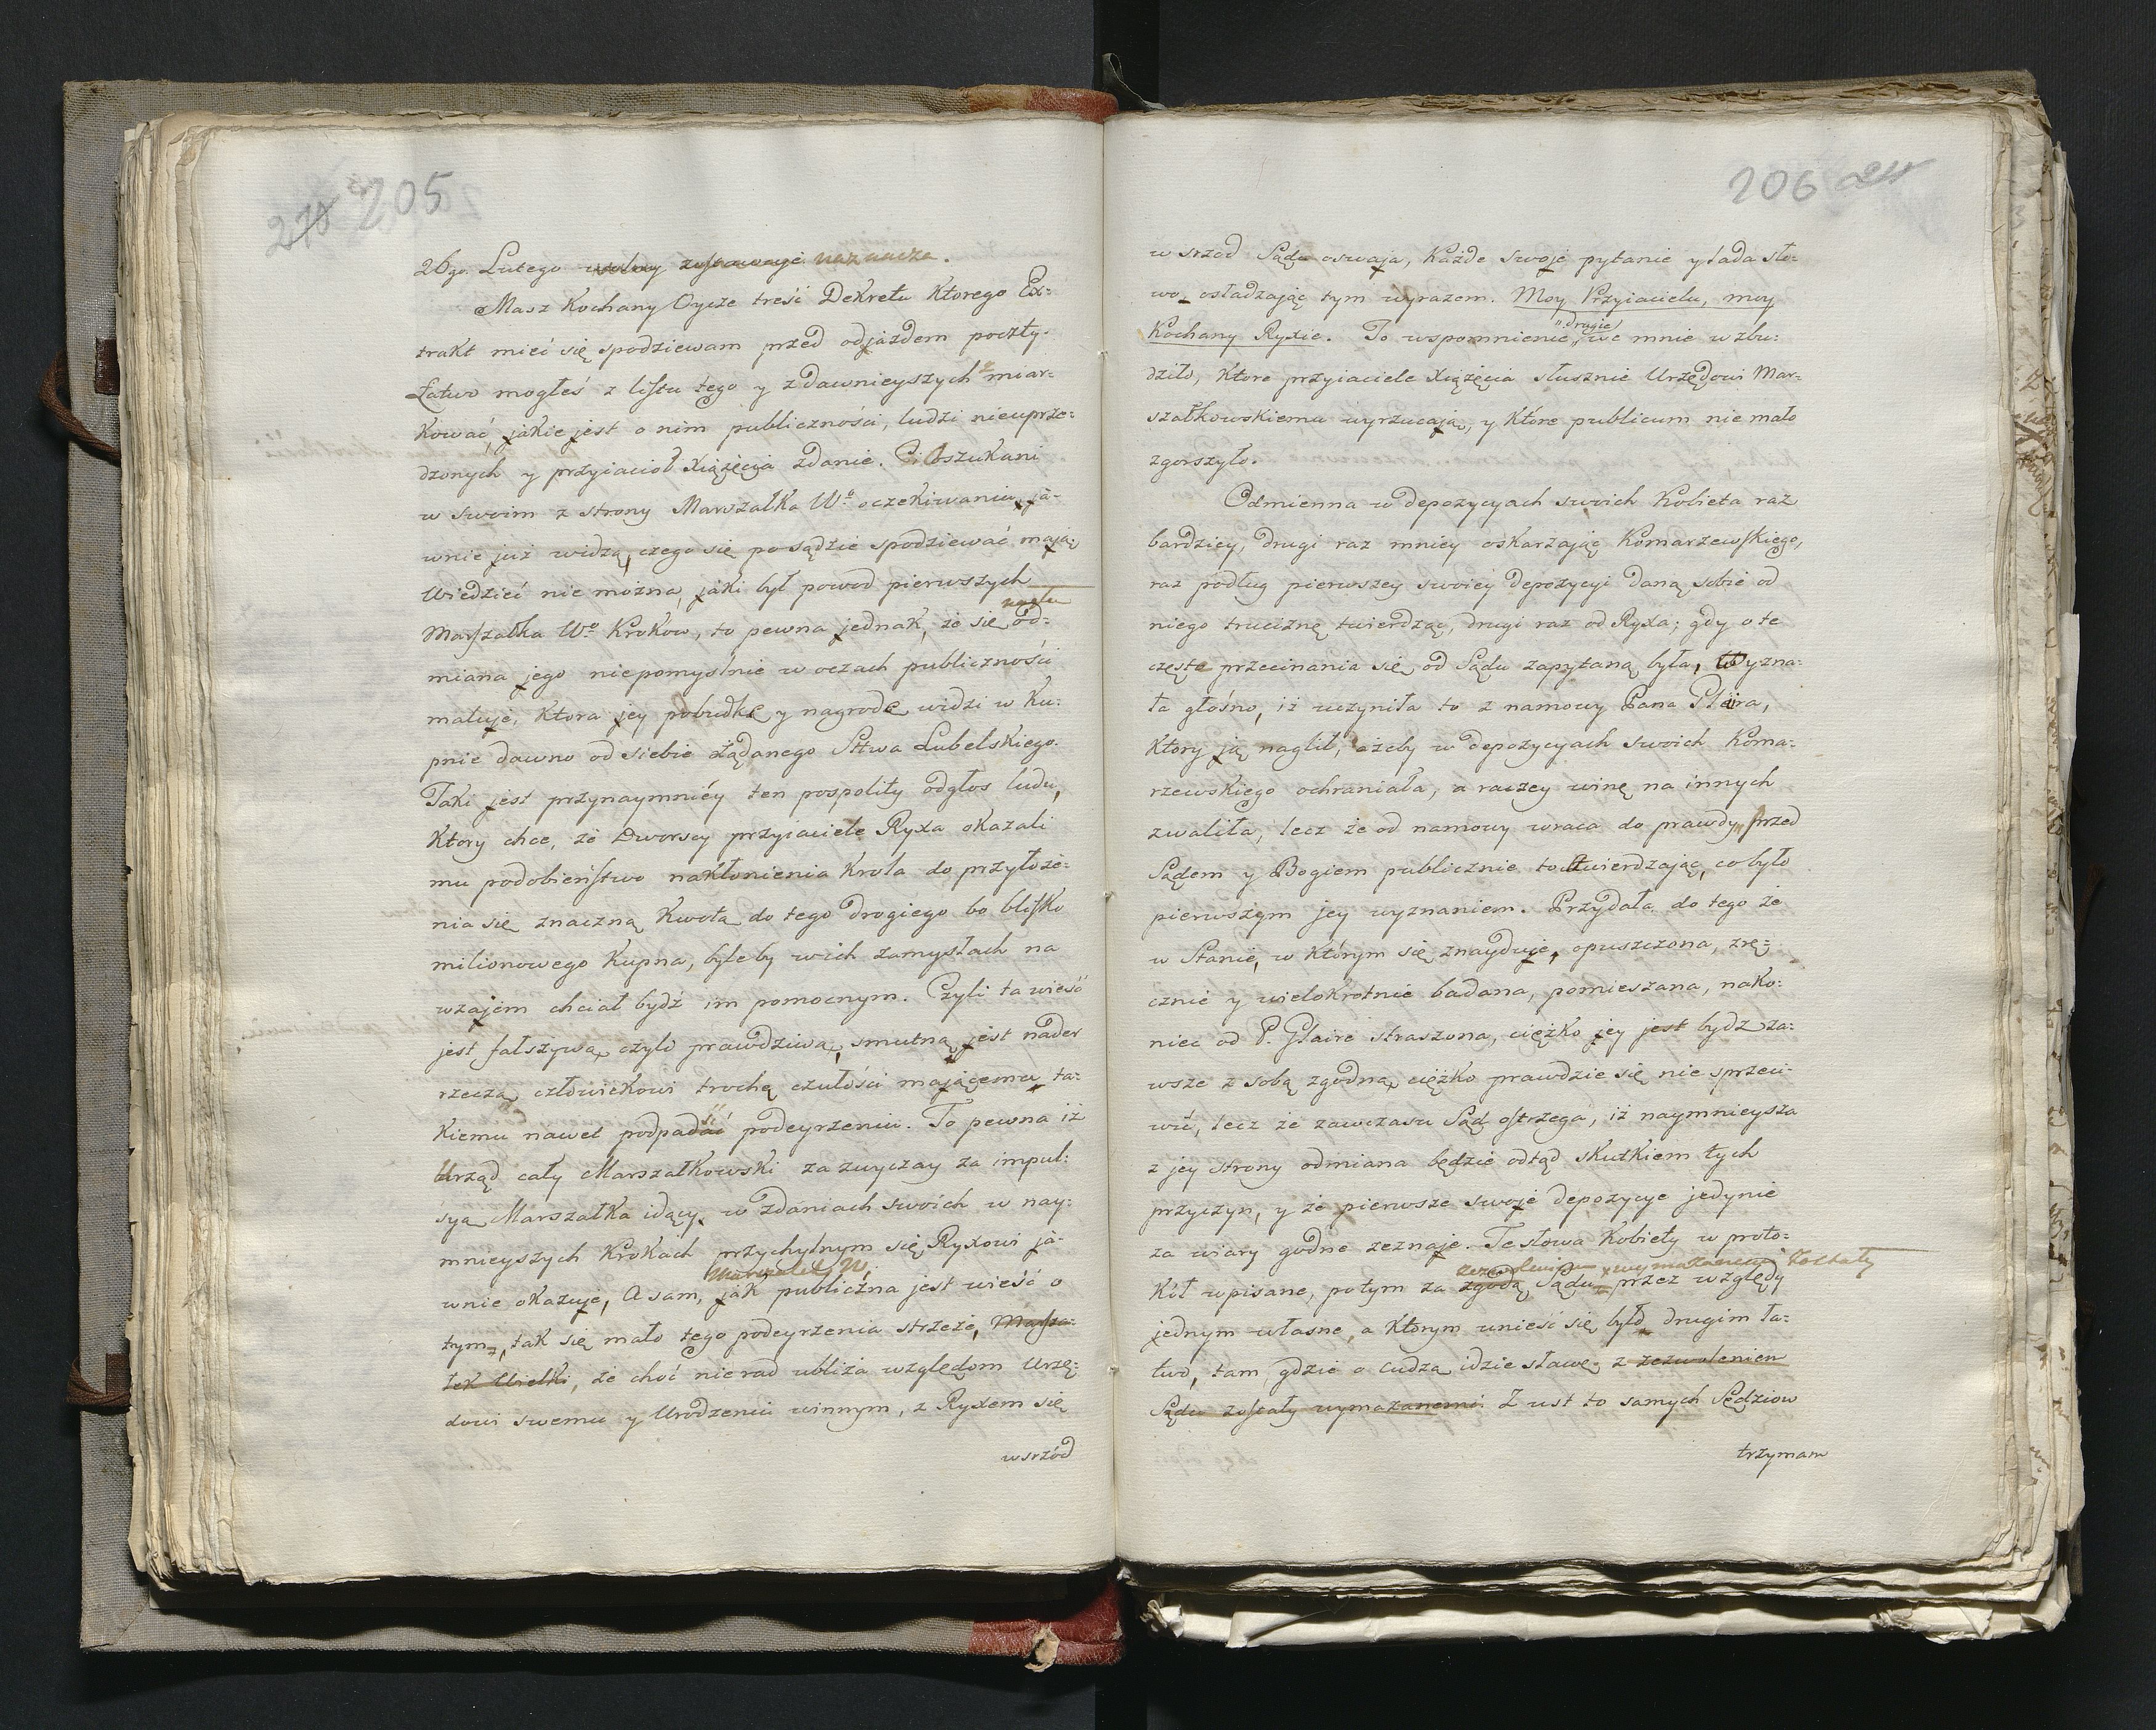 270 205
26go. Lutego wolny zostawuje naznacza.
Masz Kochany Oycze treść Dekretu Ktorego Ex:
trakt mieć się spodziewam przed odjazdem poczty.
Łatwo mogłeś z listu tego y z dawnieyszych miar:
kować, jakie jest o nim publiczności, ludzi nieuprze:
dzonych y przyiacioł Xiążęcia zdanie. Ci oszukani
w swoim z strony Marszałka Wo. oczekiwaniu, ja:
wnie już widzą, czego się po sądzie spodziewać mają,
Wiedzieć nie można, jaki był powod pierwszych
nagła
Marszałka Wo. Krokow, to pewna jednak, że się od:
miana jego niepomyślnie w oczach publiczności
maluje, Ktora jey pobudkę y nagrodę widzi w Ku:
pnie dawno od siebie żądanego Sttwa Lubelskiego.
Taki jest przynaymniéy ten pospolity odgłos ludu,
Ktory chce, że Dworscy przyiaciele Ryxa okazali
mu podobieństwo nakłonienia Krola do przyłoże:
nia się znaczną Kwotą do tego drogiego bo blisko
milionowego Kupna, byleby w ich zamysłach na
wzajem chciał bydź im pomocnym. Czyli ta wieść
jest fałszywa, czyli prawdziwa, smutną jest nader
rzeczą, człowiekowi trochę czułości mającemu, ta:
kiemu nawet podpadać podeyrzeniu. To pewna iż
Urząd cały Marszałkowski zazwyczay za impul:
syą Marszałka idący, w zdaniach swoich w nay:
mnieyszych Krokach przychylnym się Ryxowi ja:
Marszałek W.
wnie okazuje, A sam, jak publiczna jest wieść o
tym, tak się mało tego podeyrzenia strzeże, Marsza:
łek Wielki, że choć nierad ubliża względom Urzę:
dowi swemu y Urodzeniu winnym, z Ryxem się
wsrzód
206 211
w srzod Sądu oswaja, Każde swoje pytanie y lada sło:
wo osładzając tym wyrazem. Moy Przyiacielu, moy
drugie
Kochany Ryxie. To wspomnienie, we mnie wzbu:
dziło, Ktore przyiaciele Xiążęcia słusznie Urzędowi Mar:
szałkowskiemu wyrzucają, y Ktore publicum nie mało
zgorszyło.
Odmienna w depozycyach swoich Kobieta raz
bardziey, drugi raz mniey oskarzając Komarzewskiego,
raz podług pierwszey swoiey depozycyi daną sobie od
niego truciznę twierdząc, drugi raz od Ryxa; gdy o te
częste przecinania się od Sądu zapytaną była, Wyzna:
ła głośno, iż uczyniła to z namowy Pana Gleira,
Ktory ją naglił, ażeby w depozycyach swoich Koma:
rzewskiego ochraniała, a raczey winę na innych
zwaliła, lecz że od namowy wraca do prawdy przed
Sądem y Bogiem publicznie to twierdzając, co było
pierwszym jey wyznaniem. Przydała do tego że
w Stanie, w Którym się znayduje, opuszczona, zrę:
cznie y wielokrotnie badana, pomieszana, nako:
niec od P. Glaire straszona, ciężko jey jest bydz za:
wsze z sobą zgodną, ciężko prawdzie się nie sprzeci:
wić, lecz że zawczasu Sąd ostrzega, iż naymnieysza
z jey strony odmiana będzie odtąd skutkiem tych
przyczyn, y że pierwsze swoje depozycye jedynie
za wiary godne zeznaje. Te słowa Kobiety w proto:
zezwoleniem wymazanemi Zostały
Kół wpisane, potym za zgodą Sądu przez względy
jednym własne, a Ktorym unieść się było drugim ła:
two, tam gdzie o cudzą idzie sławę, z zezwoleniem
Sądu zostały wymazanemi. Z ust to samych Sędziow
trzymam